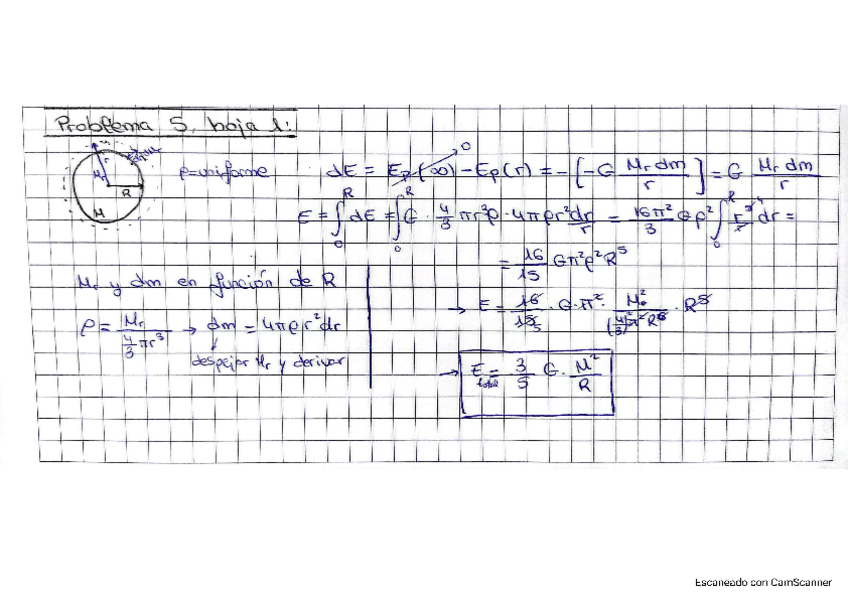 Problema 5, hoja 1:
ρ=uniforme
dE = Ep(∞) - Ep(r) = -[-G Mr dm / r] = G Mr dm / r
0
R
M
E = ∫₀ᴿ dE = ∫₀ᴿ G · 4/3 πr³ρ · 4πρr² dr / r = 16π²/3 Gρ² ∫₀ᴿ r⁴ dr =
= 16/15 Gπ²ρ²R⁵
Mr y dm en función de R
ρ = Mr / (4/3 πr³) → dm = 4πρr²dr
despejar Mr y derivar
→ E = 16/15 · G · π² · M² / ((4/3)² π² R⁶) · R⁵
→ E total = 3/5 G · M²/R
Escaneado con CamScanner